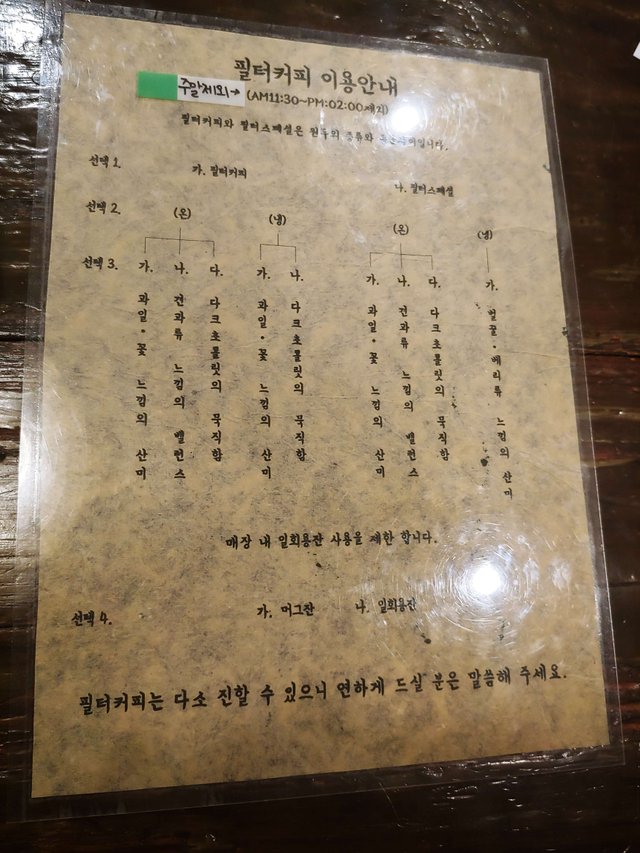 필터커피 이용안내
주말제외→ (AM11:30~PM:02:00제외)
필터커피와 필터스페셜은 원두의 종류와 입니다.
선택 1. 가. 필터커피 나. 필터스페셜
선택 2. (온) (냉) (온) (냉)
선택 3.
가. 과일·꽃 느낌의 산미
나. 견과류 느낌의 밸런스
다. 다크초콜릿의 묵직함
가. 과일·꽃 느낌의 산미
나. 다크초콜릿의 묵직함
가. 과일·꽃 느낌의 산미
나. 견과류 느낌의 밸런스
다. 다크초콜릿의 묵직함
가. 벌꿀·베리류 느낌의 산미
매장 내 일회용잔 사용을 제한 합니다.
선택 4. 가. 머그잔 나. 일회용잔
필터커피는 다소 진할 수 있으니 연하게 드실 분은 말씀해 주세요.